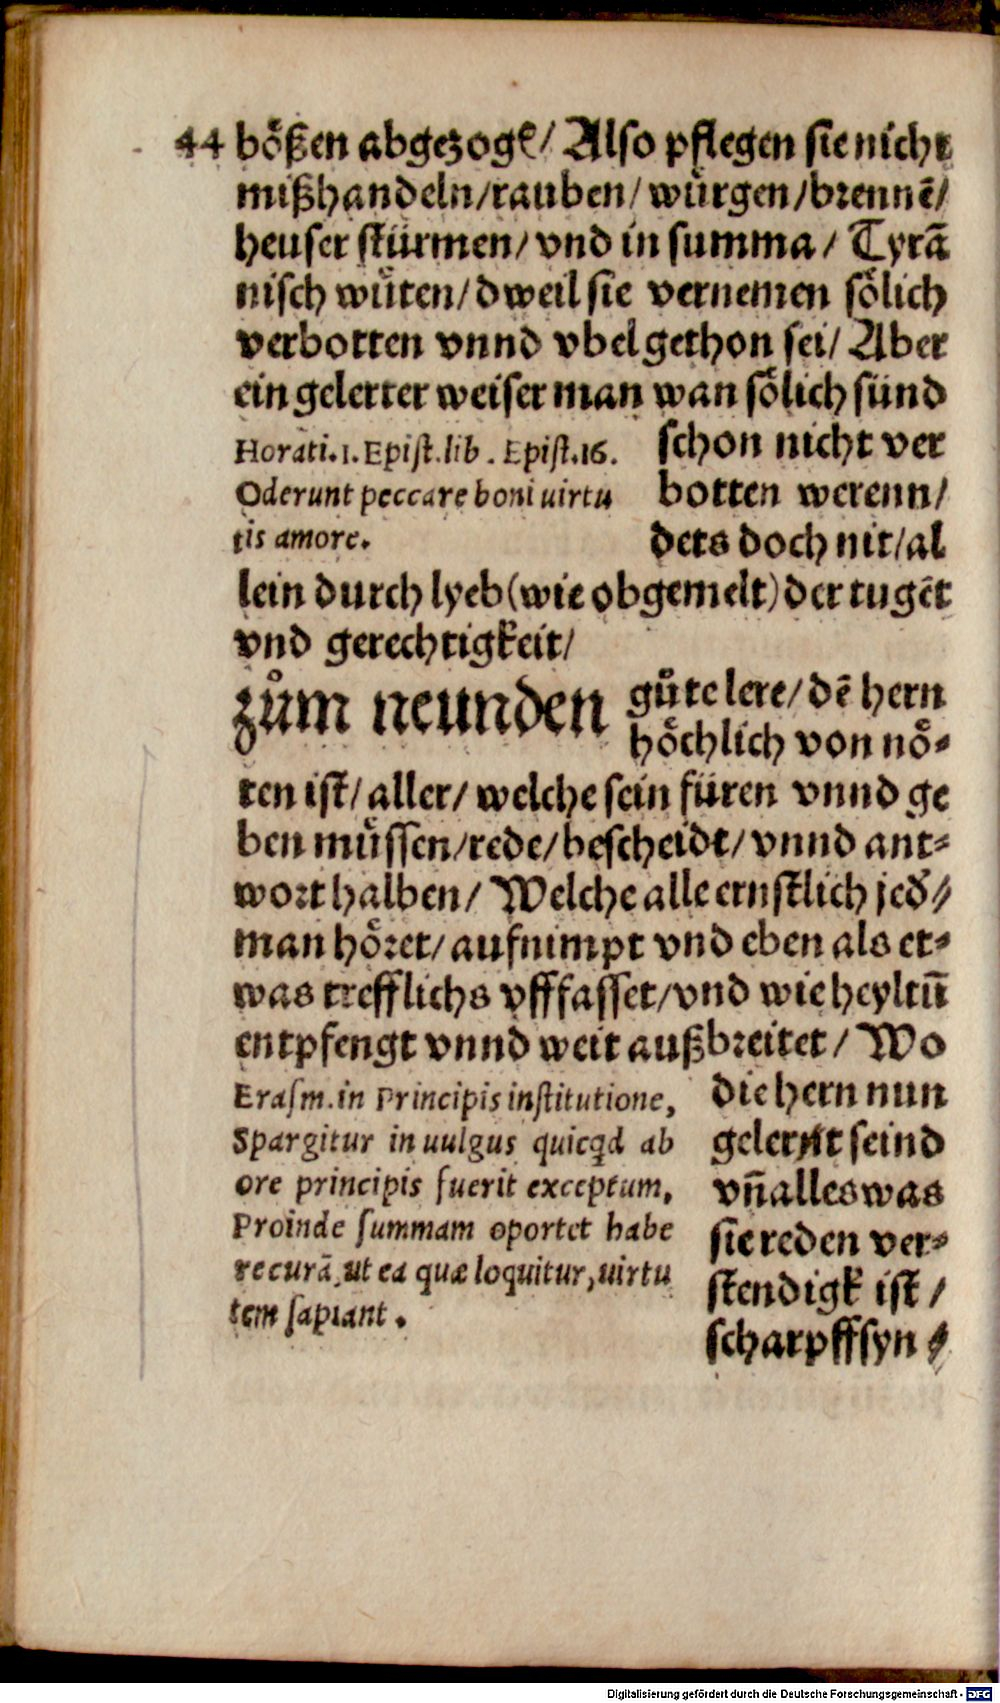 44 boͤßen abgezogẽ/ Also pflegen sie nicht
mißhandeln/rauben/ wuͤrgen/brennẽ/
heuser stürmen/ vnd in summa/ Tyrã
nisch wuͤten/dweil sie vernemen soͤlich
verbotten vnnd vbel gethon sei/ Aber
ein gelerter weiser man wan soͤlich sünd
Horati.1.Epist.lib. Epist.16.
Oderunt peccare boni uirtu
tis amore.
schon nicht ver
botten werenn/
dets doch nit/al
lein durch lyeb(wie obgemelt)der tugẽt
vnd gerechtigkeit/
zům neunden
guͤte lere/dẽ hern
hoͤchlich von noͤ⸗
ten ist/ aller/ welche sein füren vnnd ge
ben muͤssen/rede/bescheidt/ vnnd ant⸗
wort halben/ Welche alle ernstlich jed̃/
man hoͤret/ aufnimpt vnd eben als et⸗
was trefflichs vfffasset/vnd wie heyltũ
entpfengt vnnd weit außbreitet/ Wo
Erasm.in Principis institutione,
Spargitur in uulgus quicqd ab
ore principis fuerit exceptum,
Proinde summam oportet habe
re curã, ut ea quæ loquitur,uirtu
tem sapiant.
die hern nun
gelernt seind
vñ alles was
sie reden ver⸗
stendigk ist/
scharpffsyn⸗
Digitalisierung gefördert durch die Deutsche Forschungsgemeinschaft - DFG